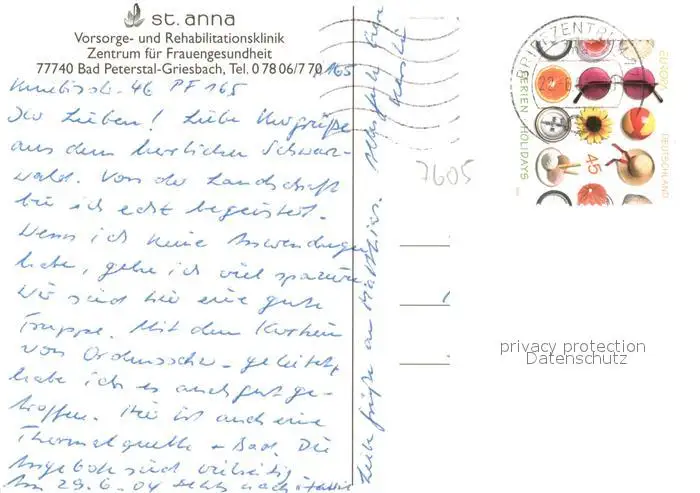 st. anna
Vorsorge- und Rehabilitationsklinik
Zentrum für Frauengesundheit
77740 Bad Peterstal-Griesbach, Tel. 0 78 06/7 70 165
46 PF 165
Ihr Lieben! Liebe Urgrüße
aus dem herrlichen Schwarz-
wald. Von der Landschaft
bin ich echt begeistert.
Wenn ich keine Anwendungen
habe, gehe ich viel spazieren.
Wir sind hier eine gute
Truppe. Mit dem Kurheim
von Ordensschw. geleitet,
habe ich es auch gut ge-
troffen. Hier ist auch eine
Thermalquelle + Bad. Die
Angebote sind vielseitig
Am 29.6.04 nach
Liebe Grüße an Matthias.
7605
BRIEFZENTRUM
22.6
EUROPA
DEUTSCHLAND
FERIEN · HOLIDAYS
45
privacy protection
Datenschutz